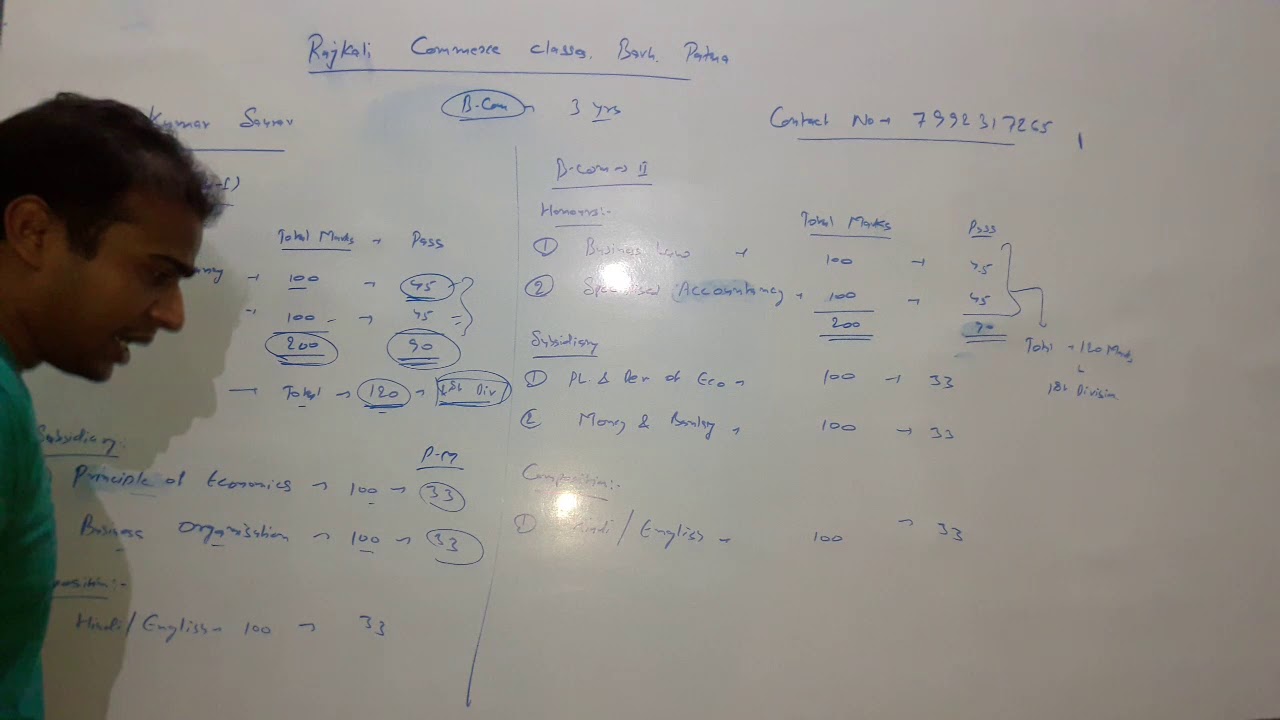 Rajkali Commerce Classes, Barh, Patna
B.Com → 3 yrs
Kumar Saurav
Contact No → 7992317265
-I)
Total Marks → Pass
→ 100 → 45
100 → 45
200 90
→ Total → 120 → 1st Div
Subsidiary:
P.M
Principle of Economics → 100 → 33
Business Organisation → 100 → 33
position:-
Hindi/English → 100 → 33
B.Com → II
Honours:-
Total Marks Pass
① Business Law → 100 → 45
② Specialised Accountancy → 100 → 45
200 90
Total → 120 Marks
↓
1st Division
Subsidiary
① Pl. & Dev of Eco → 100 → 33
② Money & Banking → 100 → 33
Composition:-
① Hindi/English → 100 → 33